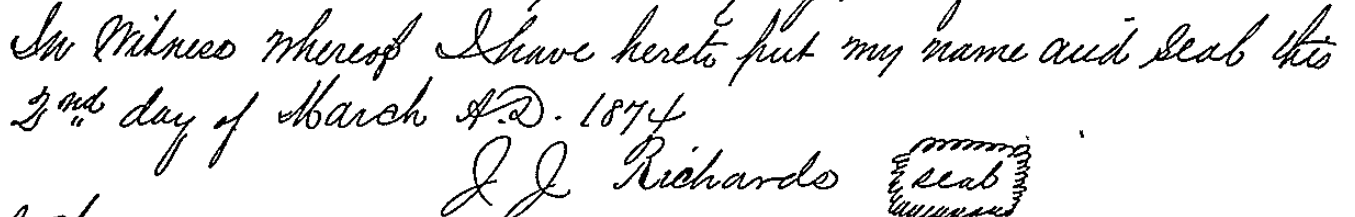 In Witness whereof I have hereto put my name and seal this
2nd day of March A.D. 1874
J J Richards seal